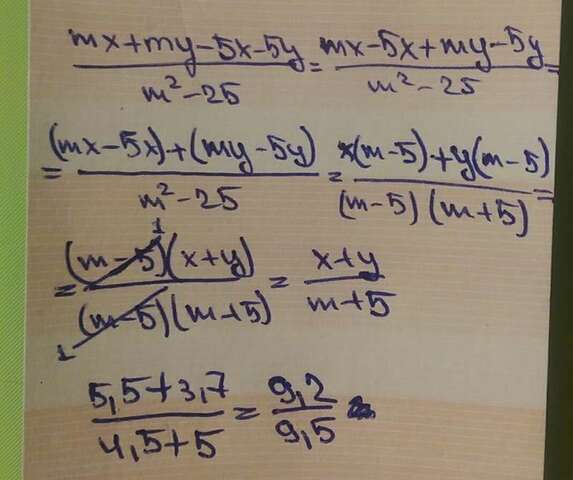 (mx+my-5x-5y)/(m²-25) = (mx-5x+my-5y)/(m²-25) =
= ((mx-5x)+(my-5y))/(m²-25) = (x(m-5)+y(m-5))/((m-5)(m+5)) =
= ((m-5)¹(x+y))/(₁(m-5)(m+5)) = (x+y)/(m+5)
(5,5+3,7)/(4,5+5) = 9,2/9,5